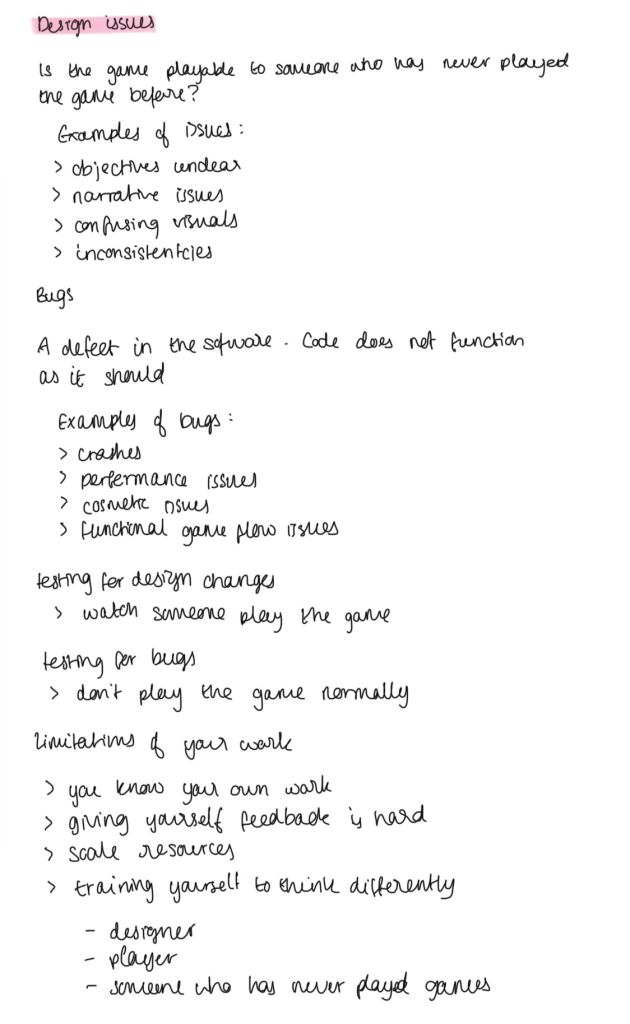 Design issues
Is the game playable to someone who has never played
the game before?
Examples of issues:
> objectives unclear
> narrative issues
> confusing visuals
> inconsistentcies
Bugs
A defect in the sofware. Code does not function
as it should
Examples of bugs:
> crashes
> performance issues
> cosmetic issues
> functional game flow issues
testing for design changes
> watch someone play the game
testing for bugs
> don't play the game normally
limitations of your work
> you know your own work
> giving yourself feedback is hard
> scale resources
> training yourself to think differently
- designer
- player
- someone who has never played games